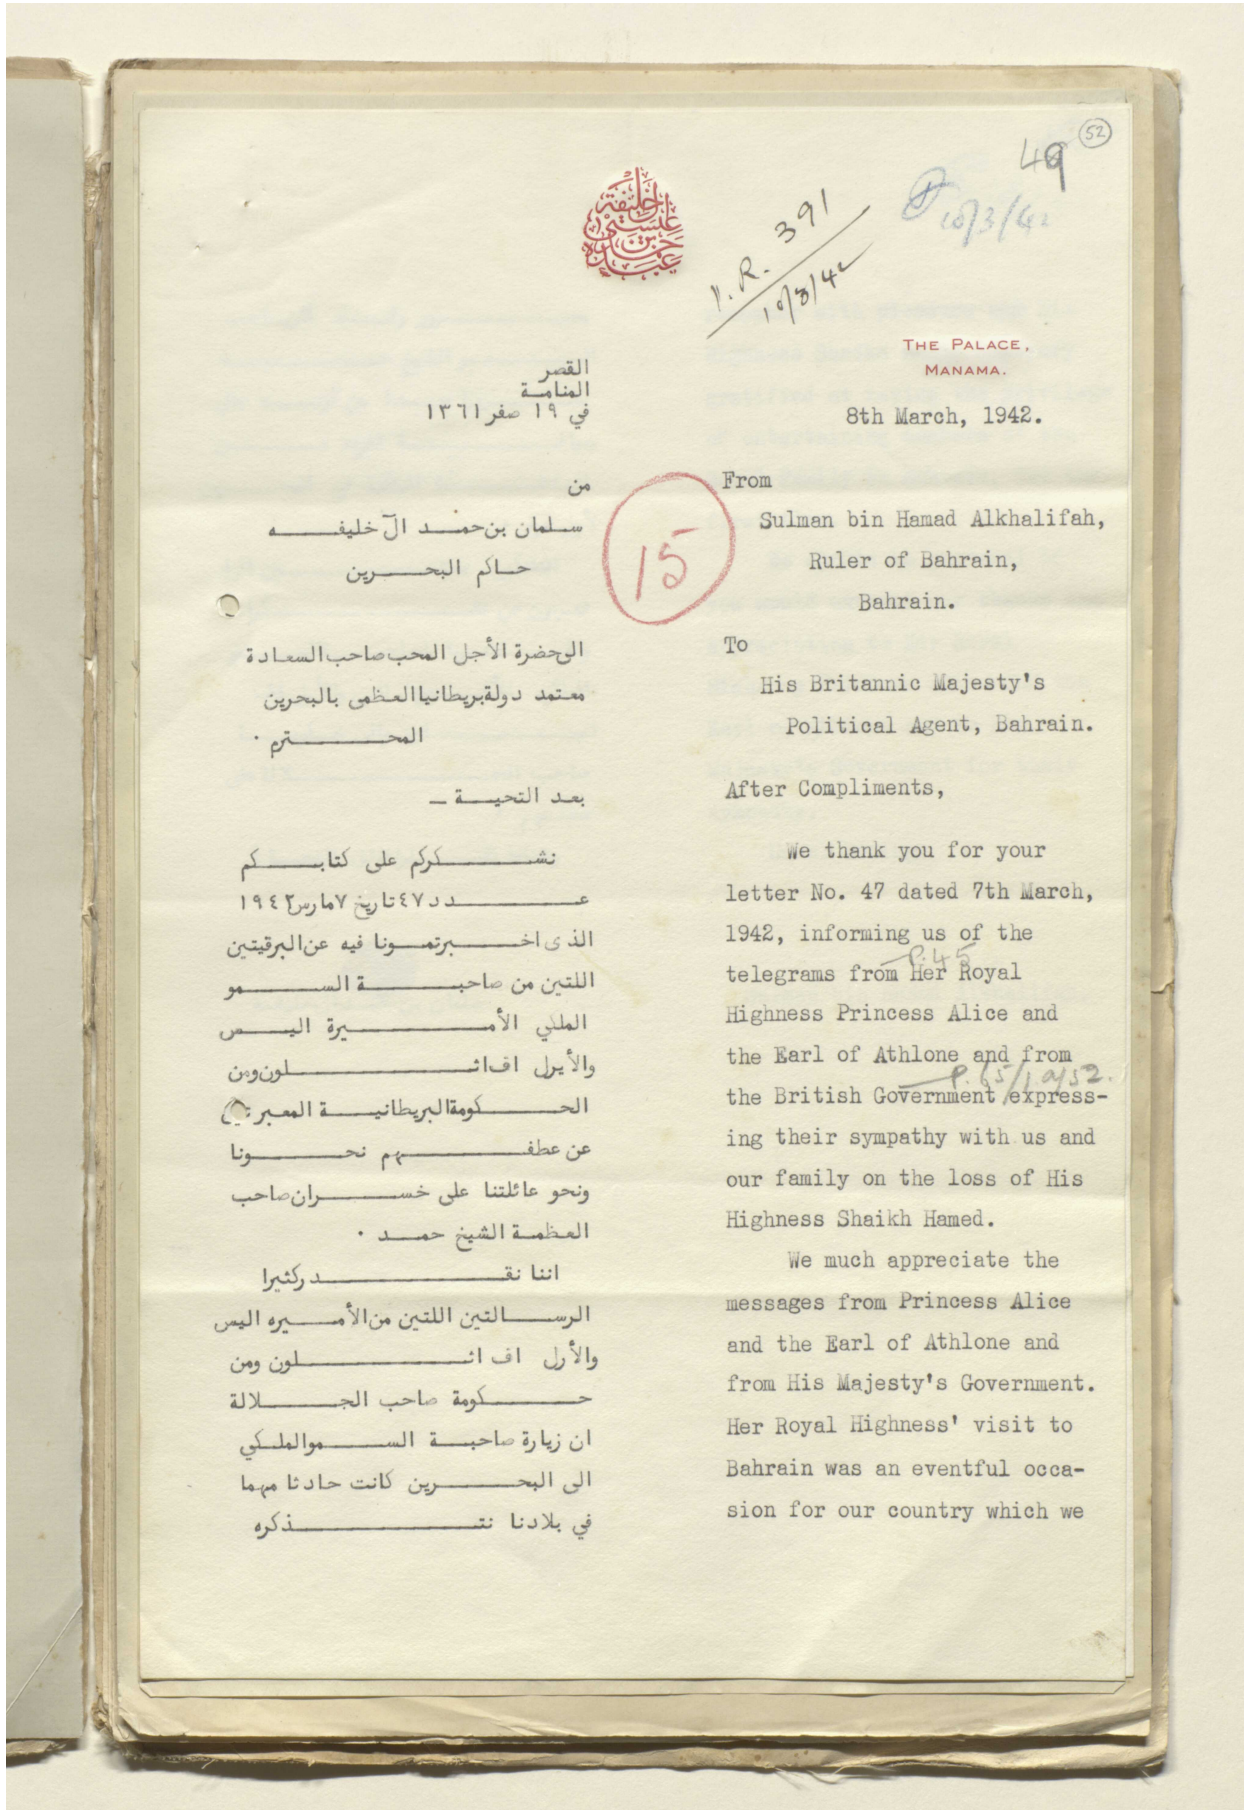 52
49
10/3/42
I.R. 391
10/3/42
THE PALACE,
MANAMA.
8th March, 1942.
15
From
Sulman bin Hamad Alkhalifah,
Ruler of Bahrain,
Bahrain.
To
His Britannic Majesty's
Political Agent, Bahrain.
After Compliments,
We thank you for your
letter No. 47 dated 7th March,
1942, informing us of the
P.45
telegrams from Her Royal
Highness Princess Alice and
the Earl of Athlone and from
the British Government express-
ing their sympathy with us and
our family on the loss of His
Highness Shaikh Hamed.
We much appreciate the
messages from Princess Alice
and the Earl of Athlone and
from His Majesty's Government.
Her Royal Highness' visit to
Bahrain was an eventful occa-
sion for our country which we
القصر
المنامة
في ١٩ صفر ١٣٦١
من
سلمان بن حمد آل خليفه
حاكم البحرين
الى حضرة الأجل المحب صاحب السعادة
معتمد دولة بريطانيا العظمى بالبحرين
المحترم ٠
بعد التحية –
نشكركم على كتابكم
عدد ٤٧ تاريخ ٧ مارس ١٩٤٢
الذى اخبرتمونا فيه عن البرقيتين
اللتين من صاحبة السمو
الملكي الأميرة اليس
والأيرل اف اثلون ومن
الحكومة البريطانية المعبرتين
عن عطفهم نحونا
ونحو عائلتنا على خسران صاحب
العظمة الشيخ حمد ٠
اننا نقدر كثيرا
الرسالتين اللتين من الأميره اليس
والأرل اف اثلون ومن
حكومة صاحب الجلالة
ان زيارة صاحبة السمو الملكي
الى البحرين كانت حادثا مهما
في بلادنا نتذكره